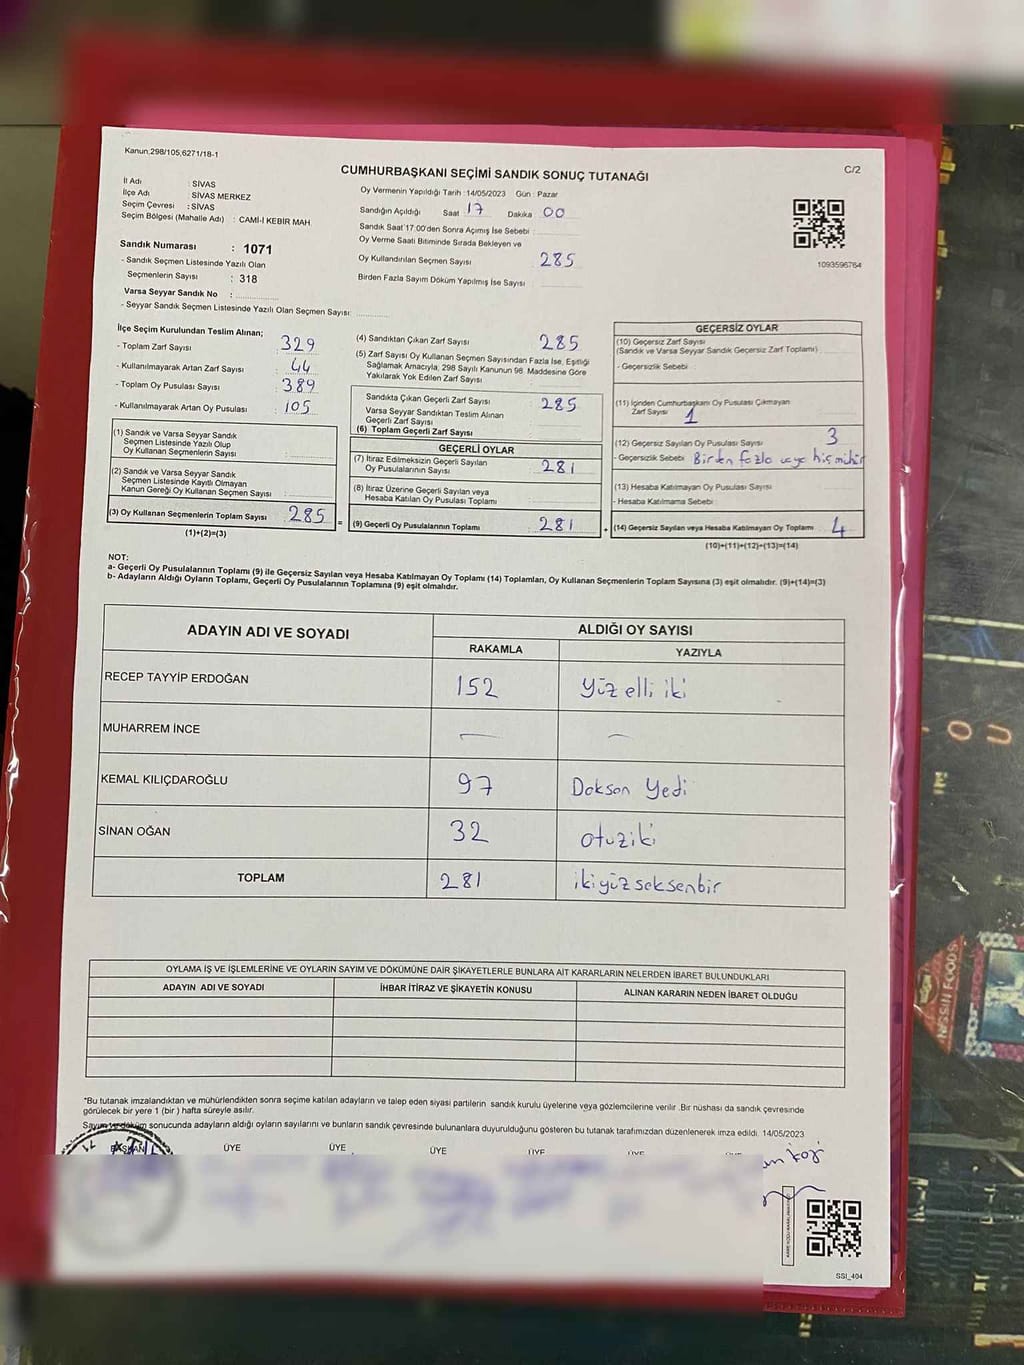 Kanun,298/105,6271/18-1
C/2
CUMHURBAŞKANI SEÇİMİ SANDIK SONUÇ TUTANAĞI
İl Adı : SİVAS
İlçe Adı : SİVAS MERKEZ
Seçim Çevresi : SİVAS
Seçim Bölgesi (Mahalle Adı) : CAMİ-İ KEBİR MAH.
Sandık Numarası : 1071
- Sandık Seçmen Listesinde Yazılı Olan
Seçmenlerin Sayısı : 318
Varsa Seyyar Sandık No :
- Seyyar Sandık Seçmen Listesinde Yazılı Olan Seçmen Sayısı:
Oy Vermenin Yapıldığı Tarih : 14/05/2023 Gün : Pazar
Sandığın Açıldığı Saat 17 Dakika 00
Sandık Saat 17:00'den Sonra Açımış İse Sebebi :
Oy Verme Saati Bitiminde Sırada Bekleyen ve
Oy Kullandırılan Seçmen Sayısı : 285
Birden Fazla Sayım Döküm Yapılmış İse Sayısı :
1093596764
İlçe Seçim Kurulundan Teslim Alınan;
- Toplam Zarf Sayısı : 329
- Kullanılmayarak Artan Zarf Sayısı : 44
- Toplam Oy Pusulası Sayısı : 389
- Kullanılmayarak Artan Oy Pusulası : 105
(1) Sandık ve Varsa Seyyar Sandık
Seçmen Listesinde Yazılı Olup
Oy Kullanan Seçmenlerin Sayısı :
(2) Sandık ve Varsa Seyyar Sandık
Seçmen Listesinde Kayıtlı Olmayan
Kanun Gereği Oy Kullanan Seçmen Sayısı :
(3) Oy Kullanan Seçmenlerin Toplam Sayısı : 285
(1)+(2)=(3)
(4) Sandıktan Çıkan Zarf Sayısı : 285
(5) Zarf Sayısı Oy Kullanan Seçmen Sayısından Fazla İse, Eşitliği
Sağlamak Amacıyla, 298 Sayılı Kanunun 98. Maddesine Göre
Yakılarak Yok Edilen Zarf Sayısı :
Sandıkta Çıkan Geçerli Zarf Sayısı : 285
Varsa Seyyar Sandıktan Teslim Alınan
Geçerli Zarf Sayısı :
(6) Toplam Geçerli Zarf Sayısı :
GEÇERLİ OYLAR
(7) İtiraz Edilmeksizin Geçerli Sayılan
Oy Pusulalarının Sayısı : 281
(8) İtiraz Üzerine Geçerli Sayılan veya
Hesaba Katılan Oy Pusulası Toplamı :
= (9) Geçerli Oy Pusulalarının Toplamı : 281
GEÇERSİZ OYLAR
(10) Geçersiz Zarf Sayısı
(Sandık ve Varsa Seyyar Sandık Geçersiz Zarf Toplamı) :
- Geçersizlik Sebebi :
(11) İçinden Cumhurbaşkanı Oy Pusulası Çıkmayan
Zarf Sayısı : 1
(12) Geçersiz Sayılan Oy Pusulası Sayısı : 3
- Geçersizlik Sebebi : Birden fazla veya hiç mühür
(13) Hesaba Katılmayan Oy Pusulası Sayısı :
- Hesaba Katılmama Sebebi :
+ (14) Geçersiz Sayılan veya Hesaba Katılmayan Oy Toplamı : 4
(10)+(11)+(12)+(13)=(14)
NOT:
a- Geçerli Oy Pusulalarının Toplamı (9) ile Geçersiz Sayılan veya Hesaba Katılmayan Oy Toplamı (14) Toplamları, Oy Kullanan Seçmenlerin Toplam Sayısına (3) eşit olmalıdır. (9)+(14)=(3)
b- Adayların Aldığı Oyların Toplamı, Geçerli Oy Pusulalarının Toplamına (9) eşit olmalıdır.
ADAYIN ADI VE SOYADI ALDIĞI OY SAYISI
RAKAMLA YAZIYLA
RECEP TAYYİP ERDOĞAN 152 Yüz elli iki
MUHARREM İNCE — —
KEMAL KILIÇDAROĞLU 97 Dokson Yedi
SİNAN OĞAN 32 otuziki
TOPLAM 281 ikiyüzseksenbir
OYLAMA İŞ VE İŞLEMLERİNE VE OYLARIN SAYIM VE DÖKÜMÜNE DAİR ŞİKAYETLERLE BUNLARA AİT KARARLARIN NELERDEN İBARET BULUNDUKLARI
ADAYIN ADI VE SOYADI İHBAR İTİRAZ VE ŞİKAYETİN KONUSU ALINAN KARARIN NEDEN İBARET OLDUĞU
"Bu tutanak imzalandıktan ve mühürlendikten sonra seçime katılan adayların ve talep eden siyasi partilerin sandık kurulu üyelerine veya gözlemcilerine verilir .Bir nüshası da sandık çevresinde
görülecek bir yere 1 (bir ) hafta süreyle asılır.
Sayım ve döküm sonucunda adayların aldığı oyların sayılarını ve bunların sandık çevresinde bulunanlara duyurulduğunu gösteren bu tutanak tarafımızdan düzenlenerek imza edildi. 14/05/2023
BAŞKAN ÜYE ÜYE ÜYE ÜYE ÜYE ÜYE
SSI_404
NISSIN FOODS